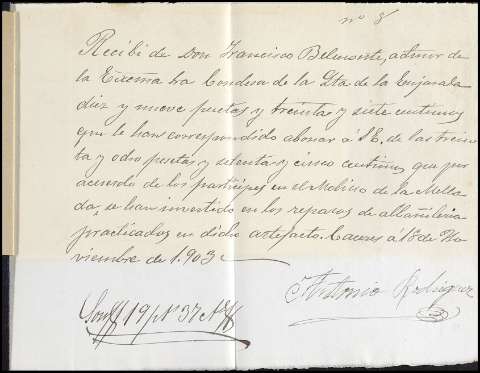 nº 8
Recibí de Don Francisco Belmonte, admor de
la Excma Sra Condesa de la Qta de la Enjarada
diez y nueve pesetas y treinta y siete centimos
que le han correspondido abonar á S.E. de las trein-
ta y ocho pesetas y setenta y cinco centimos que por
acuerdo de los participes en el Molino de la Mella-
da, se han invertido en los reparos de albañileria
practicados en dicho artefacto. Caceres á 18 de No-
viembre de 1.903
Antonio Rodriguez
19 37